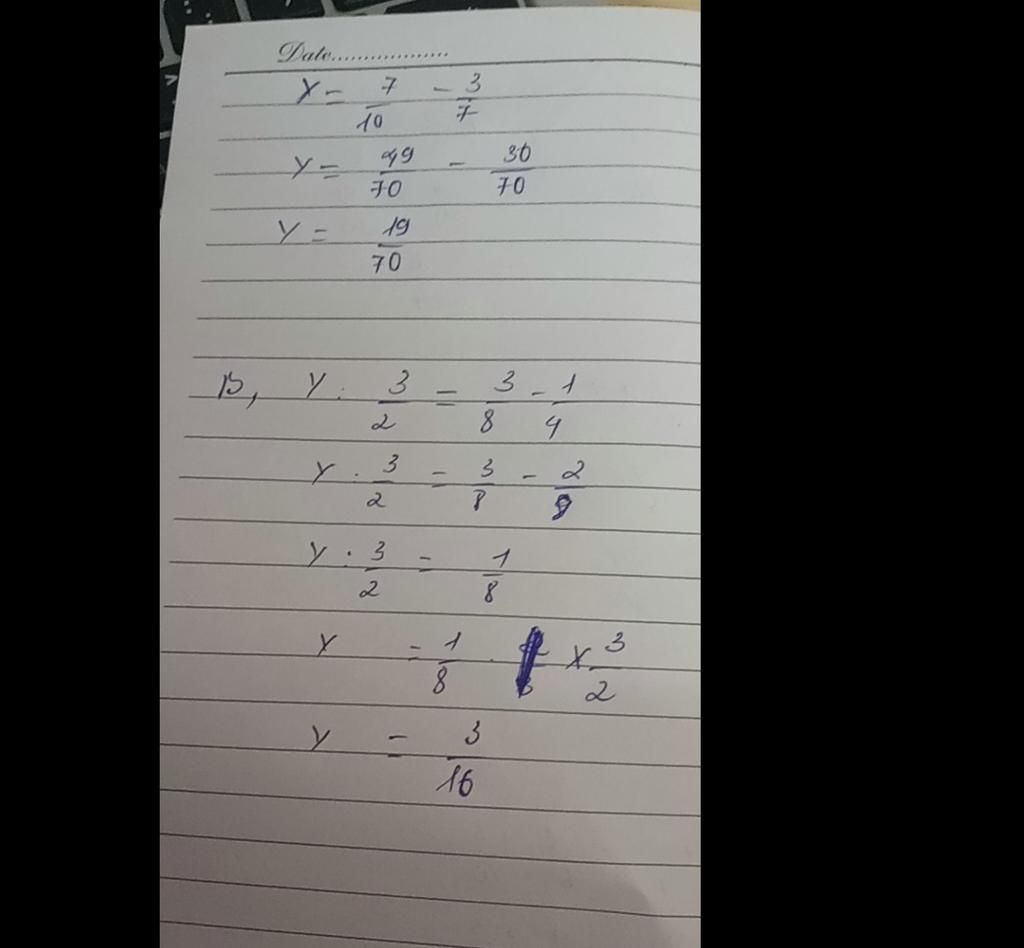 Date..................
Y = 7/10 - 3/7
Y = 49/70 - 30/70
Y = 19/70
B, Y : 3/2 = 3/8 - 1/4
Y : 3/2 = 3/8 - 2/8
Y : 3/2 = 1/8
Y = 1/8 x 3/2
Y = 3/16